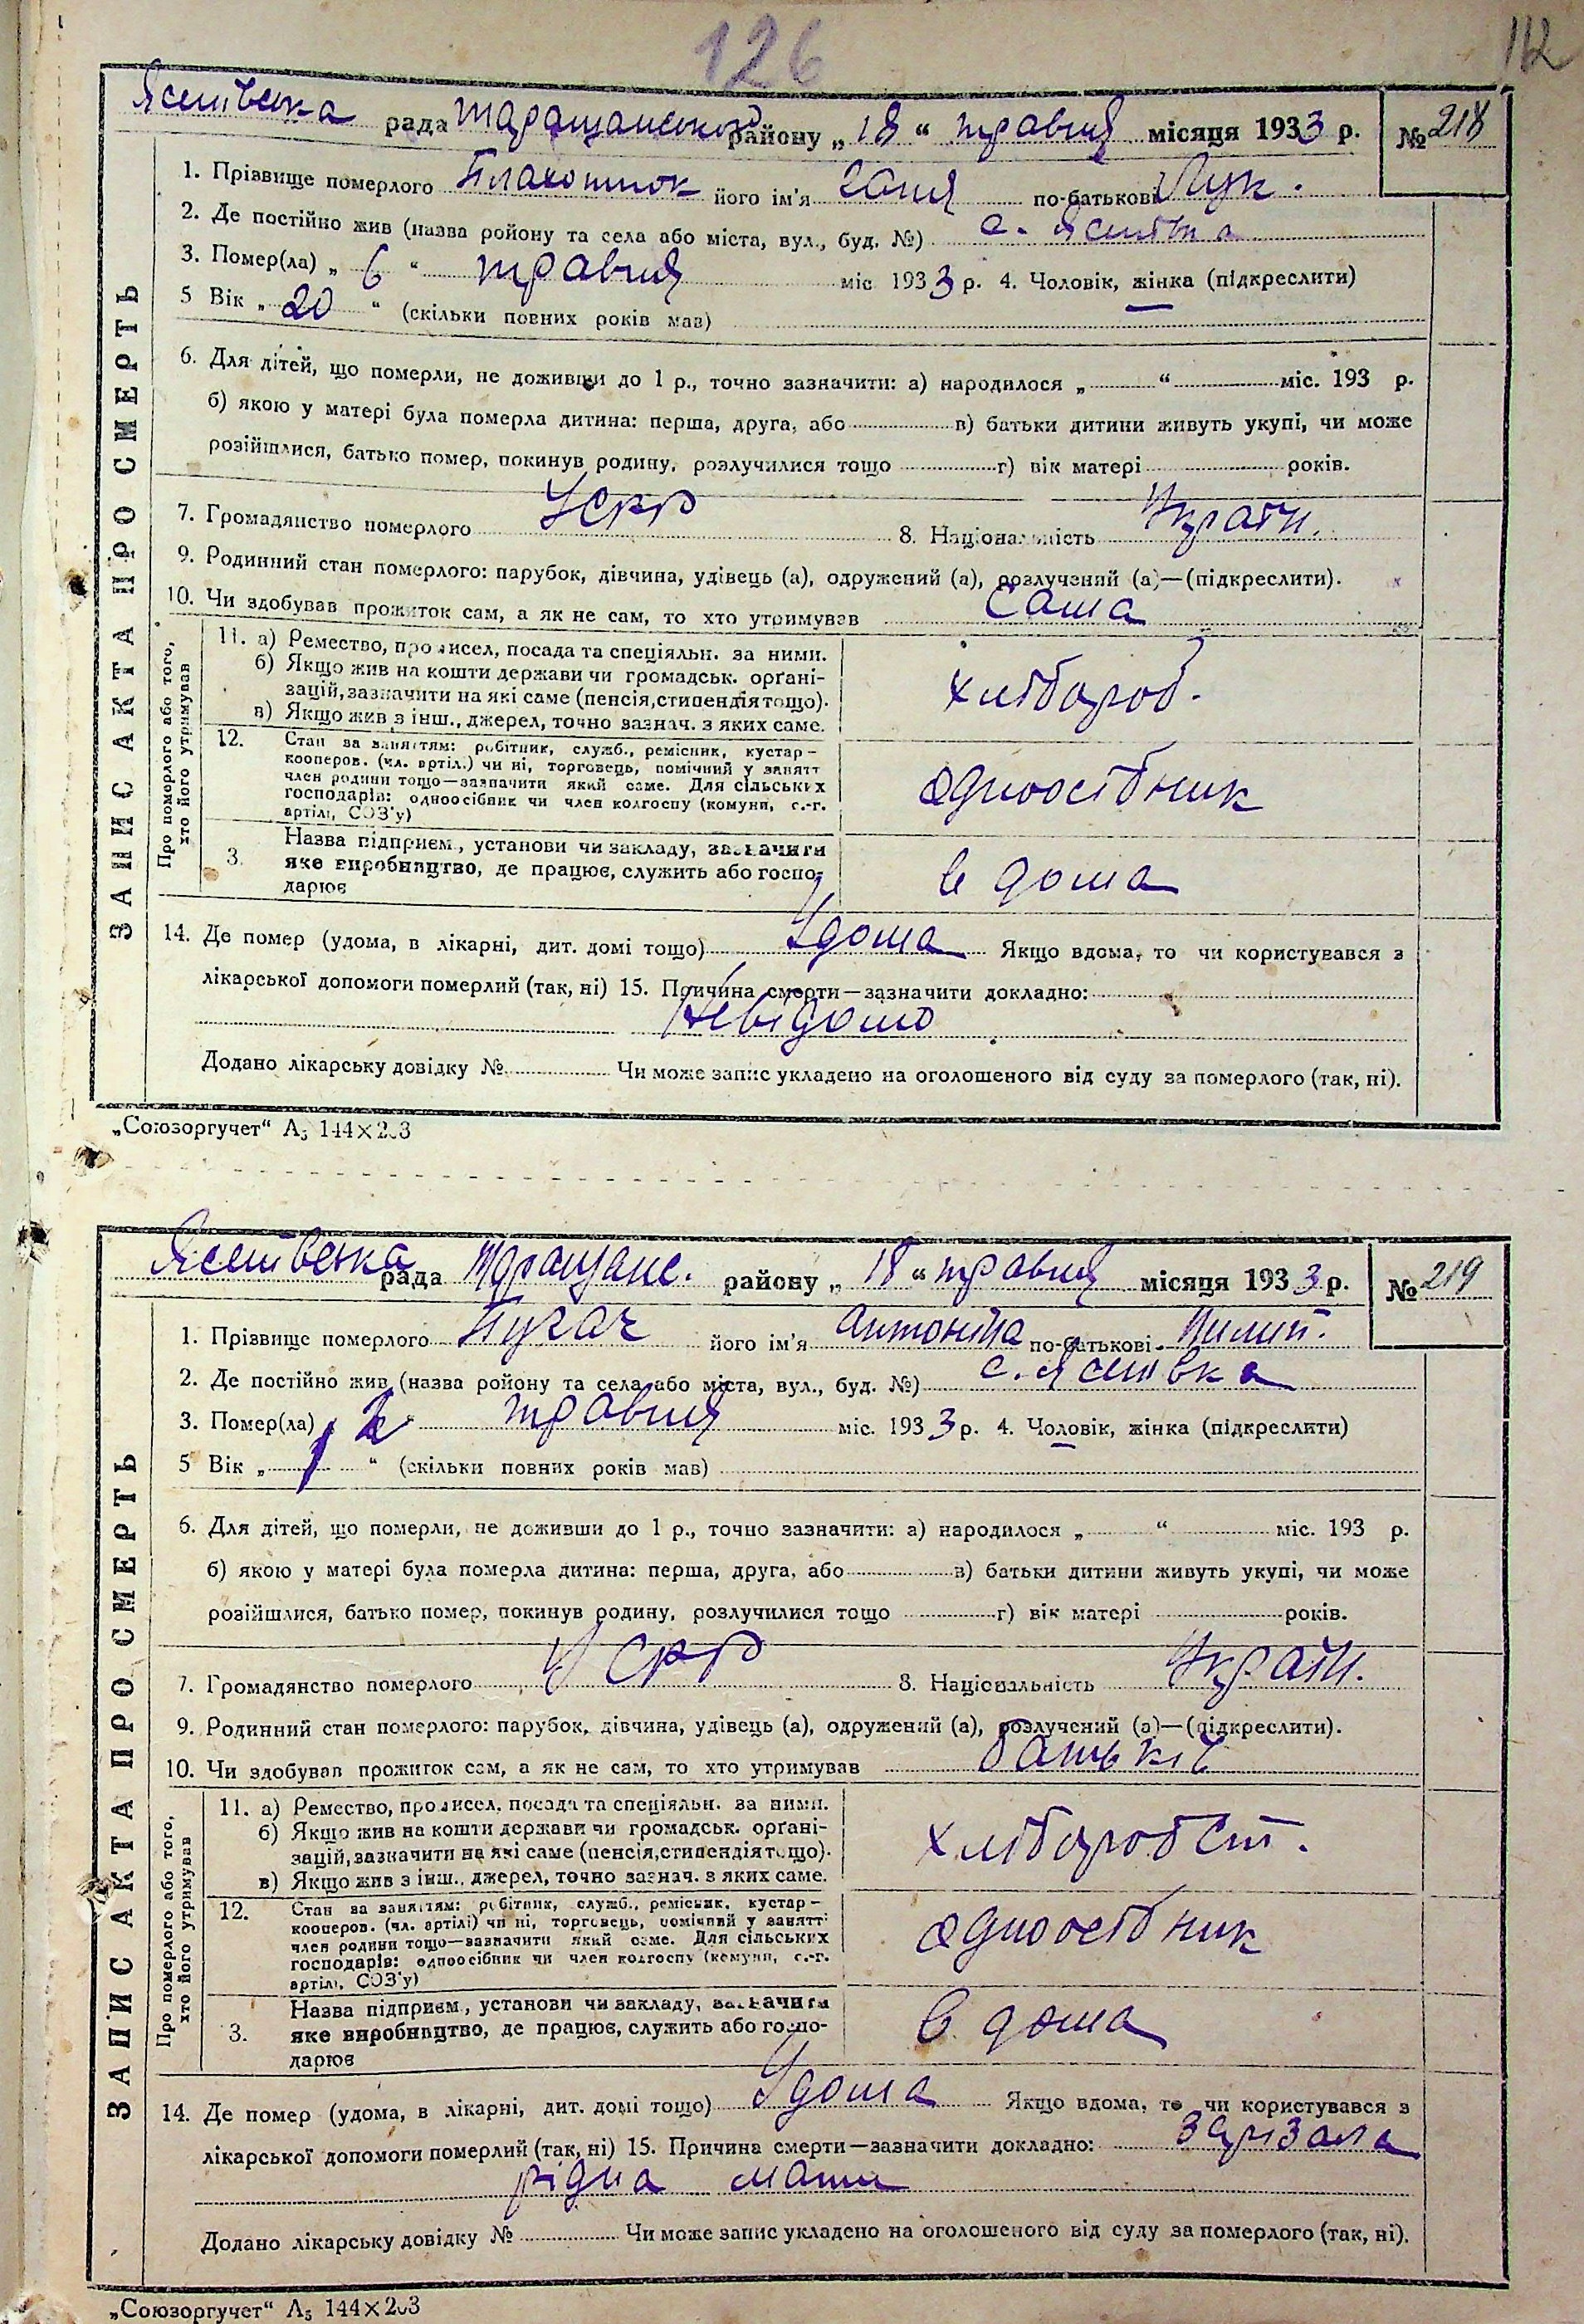 126
112
Ясенівська рада Таращанського району „18“ травня місяця 1933 р. № 218
1. Прізвище померлого Плахотнюк його ім'я Ганя по-батькові Лук.
2. Де постійно жив (назва ройону та села або міста, вул., буд. №) с. Ясенівка
3. Помер(ла) „6“ травня міс 1933 р. 4. Чоловік, жінка (підкреслити)
5 Вік „20“ (скільки повних років мав)
6. Для дітей, що померли, не доживши до 1 р., точно зазначити: а) народилося „ “ міс. 193 р.
б) якою у матері була померла дитина: перша, друга, або в) батьки дитини живуть укупі, чи може
розійшлися, батько помер, покинув родину, розлучилися тощо г) вік матері років.
7. Громадянство померлого УСРР 8. Національність Україн.
9. Родинний стан померлого: парубок, дівчина, удівець (а), одружений (а), розлучений (а)—(підкреслити).
10. Чи здобував прожиток сам, а як не сам, то хто утримував Сама
ЗАПИС АКТА ПРО СМЕРТЬ
Про померлого або того, хто його утримував
11. а) Ремество, промисел, посада та спеціяльн. за ними.
б) Якщо жив на кошти держави чи громадськ. орґані-
зацій, зазначити на які саме (пенсія, стипендія тощо).
в) Якщо жив з інш., джерел, точно зазнач. з яких саме.
хлібороб.
12. Стан за заняттям: робітник, служб., ремісник, кустар–
кооперов. (чл. артіл.) чи ні, торговець, помічний у занятт
член родини тощо—зазначити який саме. Для сільських
господарів: одноосібник чи член колгоспу (комуни, с.-г.
артілі, СОЗ'у)
одноосібник
3. Назва підприєм., установи чи закладу, зазначити
яке виробництво, де працює, служить або госпо-
дарює
в дома
14. Де помер (удома, в лікарні, дит. домі тощо) Удома Якщо вдома, то чи користувався з
лікарської допомоги померлий (так, ні) 15. Причина смерти—зазначити докладно:
Невідомо
Додано лікарську довідку № Чи може запис укладено на оголошеного від суду за померлого (так, ні).
„Союзоргучет“ А5 144×203
Ясенівська рада Таращанс. району „18“ травня місяця 1933 р. № 219
1. Прізвище померлого Пугач його ім'я Антоніна по-батькові Пилип.
2. Де постійно жив (назва ройону та села або міста, вул., буд. №) с. Ясенівка
3. Помер(ла) травня міс. 1933 р. 4. Чоловік, жінка (підкреслити)
5 Вік „1“ (скільки повних років мав)
6. Для дітей, що померли, не доживши до 1 р., точно зазначити: а) народилося „ “ міс. 193 р.
б) якою у матері була померла дитина: перша, друга, або в) батьки дитини живуть укупі, чи може
розійшлися, батько помер, покинув родину, розлучилися тощо г) вік матері років.
7. Громадянство померлого УСРР 8. Національність Україн.
9. Родинний стан померлого: парубок, дівчина, удівець (а), одружений (а), розлучений (а)—(підкреслити).
10. Чи здобував прожиток сам, а як не сам, то хто утримував батьків
ЗАПИС АКТА ПРО СМЕРТЬ
Про померлого або того, хто його утримував
11. а) Ремество, промисел, посада та спеціяльн. за ними.
б) Якщо жив на кошти держави чи громадськ. орґані-
зацій, зазначити на які саме (пенсія, стипендія тощо).
в) Якщо жив з інш., джерел, точно зазнач. з яких саме.
хліборобст.
12. Стан за заняттям: робітник, служб., ремісник, кустар–
кооперов. (чл. артілі) чи ні, торговець, помічний у занятт
член родини тощо—зазначити який саме. Для сільських
господарів: одноосібник чи член колгоспу (комуни, с.-г.
артілі, СОЗ'у)
одноосібник
3. Назва підприєм., установи чи закладу, зазначити
яке виробництво, де працює, служить або госпо-
дарює
в дома
14. Де помер (удома, в лікарні, дит. домі тощо) Удома Якщо вдома, то чи користувався з
лікарської допомоги померлий (так, ні) 15. Причина смерти—зазначити докладно: зарізала
рідна мати
Додано лікарську довідку № Чи може запис укладено на оголошеного від суду за померлого (так, ні).
„Союзоргучет“ А5 144×203